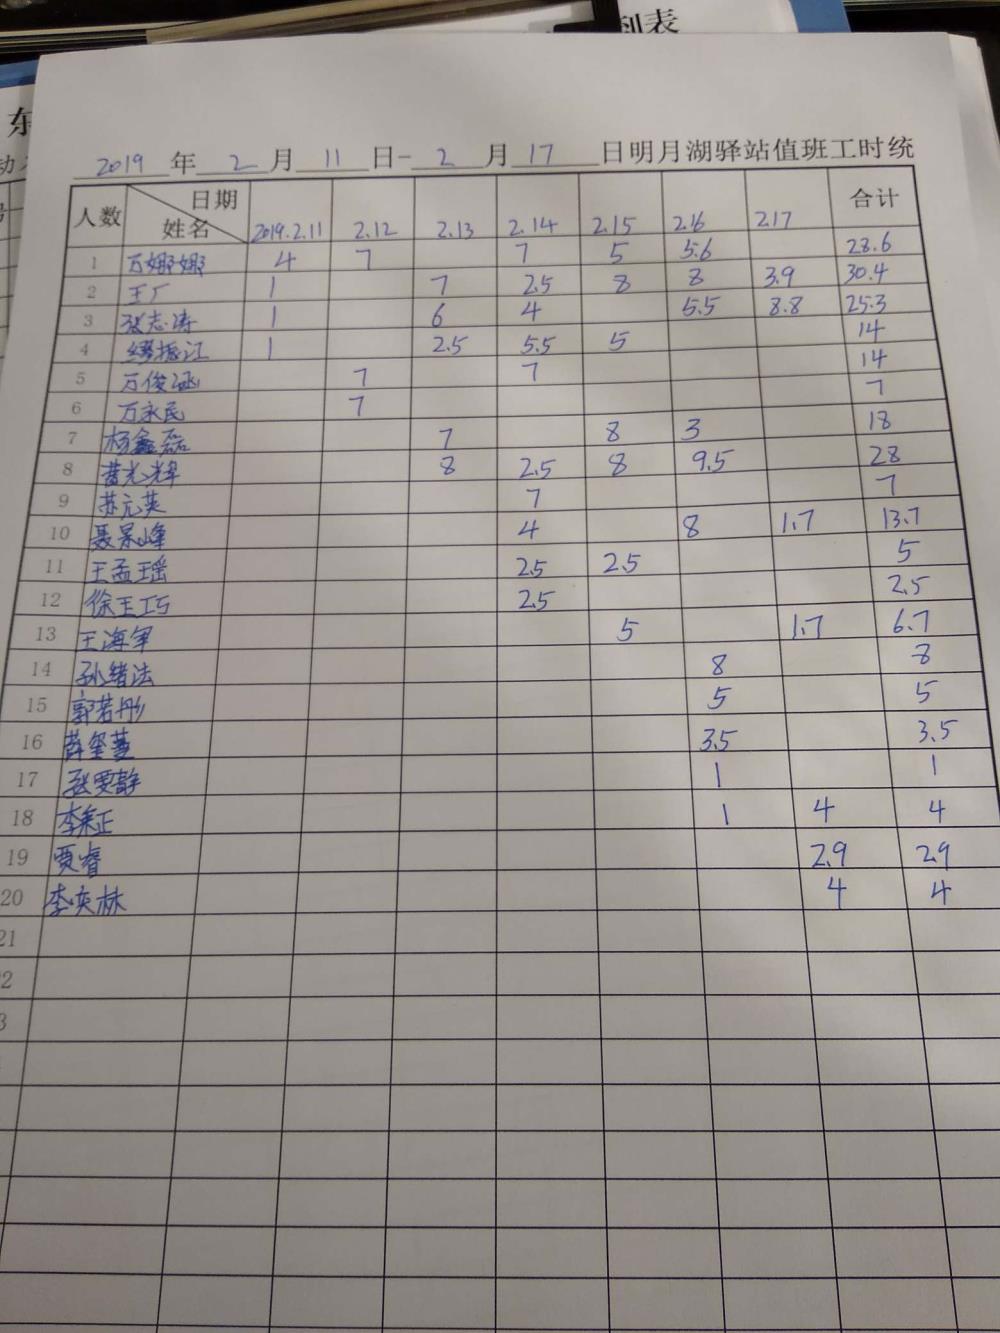 列表
东
2019 年 2 月 11 日-2 月 17 日明月湖驿站值班工时统
人数 日期 姓名 2019.2.11 2.12 2.13 2.14 2.15 2.16 2.17 合计
1 万娜娜 4 7 7 5 5.6 28.6
2 王厂 1 7 2.5 8 8 3.9 30.4
3 张志涛 1 6 4 5.5 8.8 25.3
4 缪振江 1 2.5 5.5 5 14
5 万俊涵 7 7 14
6 万永民 7 7
7 杨鑫磊 7 8 3 18
8 黄光辉 8 2.5 8 9.5 28
9 苏元英 7 7
10 聂景峰 4 8 1.7 13.7
11 王孟瑶 2.5 2.5 5
12 徐王巧 2.5 2.5
13 王海军 5 1.7 6.7
14 孙绪法 8 8
15 郭若彤 5 5
16 薛玺蔓 3.5 3.5
17 张雯静 1 1
18 李秉正 1 4 4
19 贾睿 2.9 2.9
20 李奕林 4 4
21